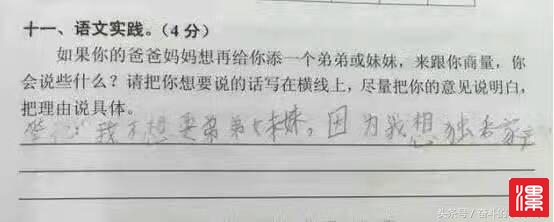 十一、语文实践。(4分)
如果你的爸爸妈妈想再给你添一个弟弟或妹妹，来跟你商量，你
会说些什么？请把你想要说的话写在横线上，尽量把你的意见说明白，
把理由说具体。
答：我不想要弟弟妹妹。因为我想独吞家产
头条号/奋斗的